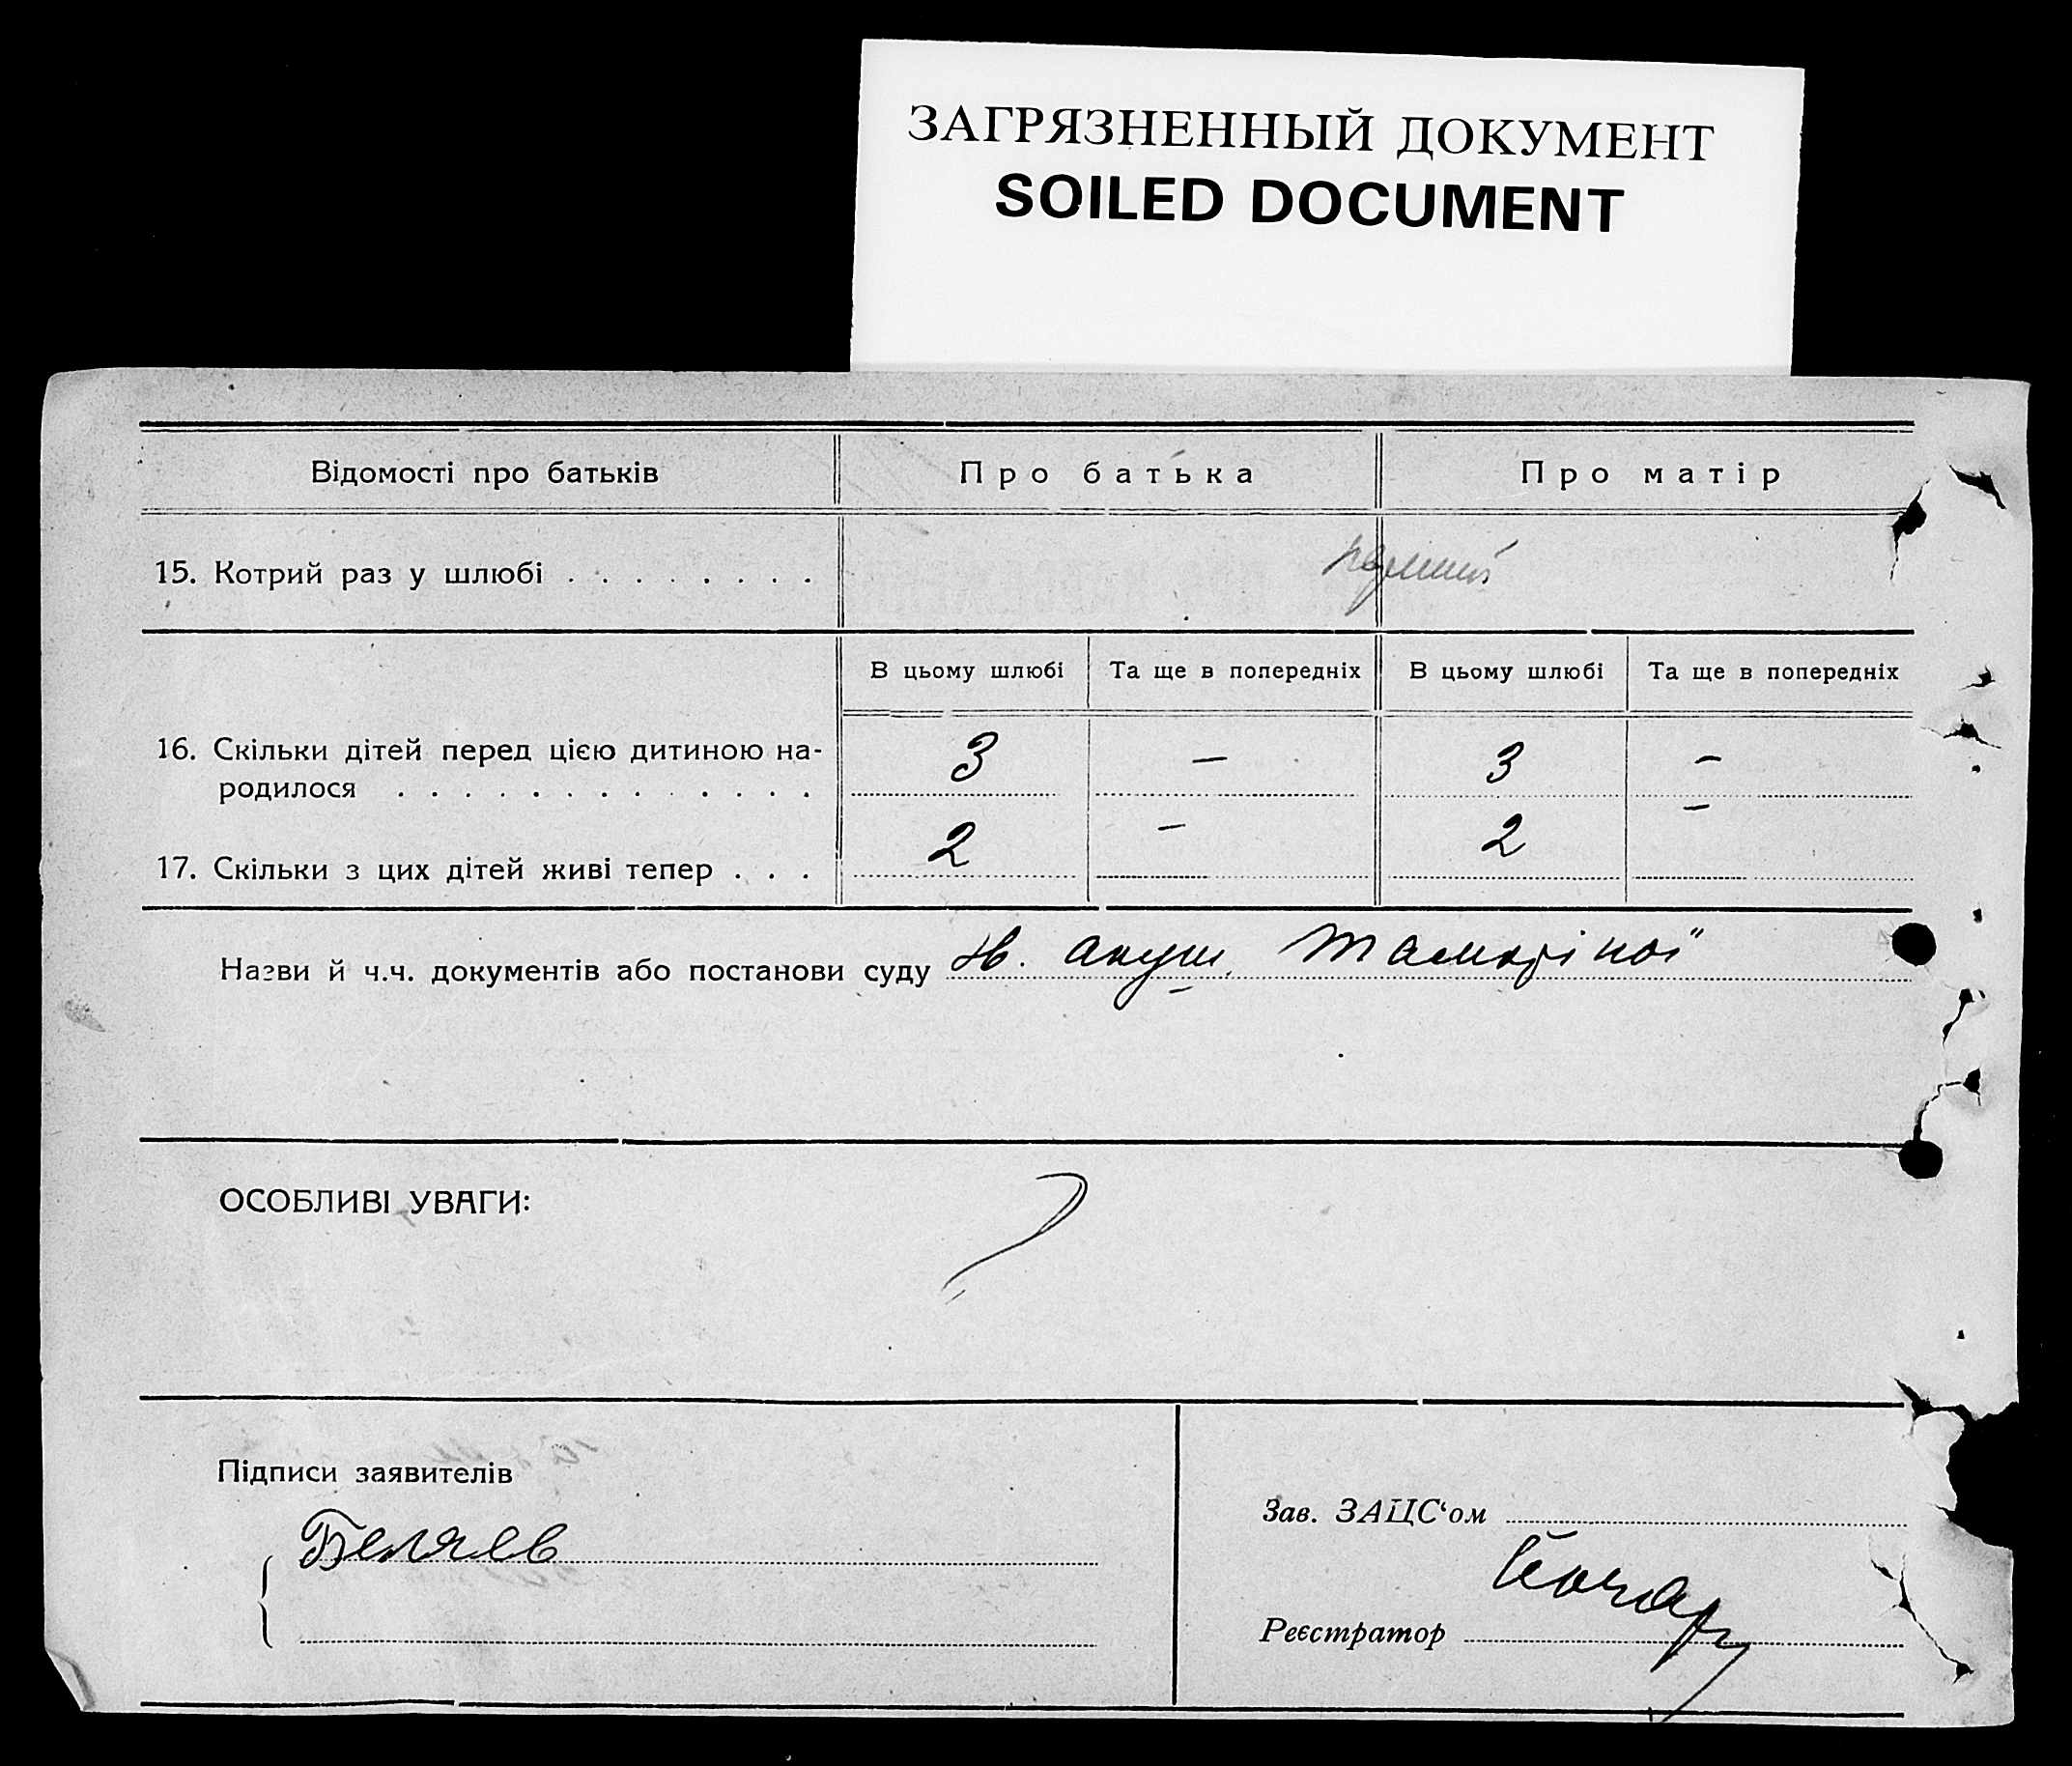 ЗАГРЯЗНЕННЫЙ ДОКУМЕНТ
SOILED DOCUMENT
Відомості про батьків Про батька Про матір
15. Котрий раз у шлюбі . . . . . . . .
В цьому шлюбі Та ще в попередніх В цьому шлюбі Та ще в попередніх
16. Скільки дітей перед цією дитиною на- 3 — 3 —
родилося . . . . . . . . . . . . .
17. Скільки з цих дітей живі тепер . . . 2 — 2 —
Назви й ч.ч. документів або постанови суду акуш.
ОСОБЛИВІ УВАГИ:
Підписи заявителів
Беляев
Зав. ЗАЦС‘ом
Реєстратор